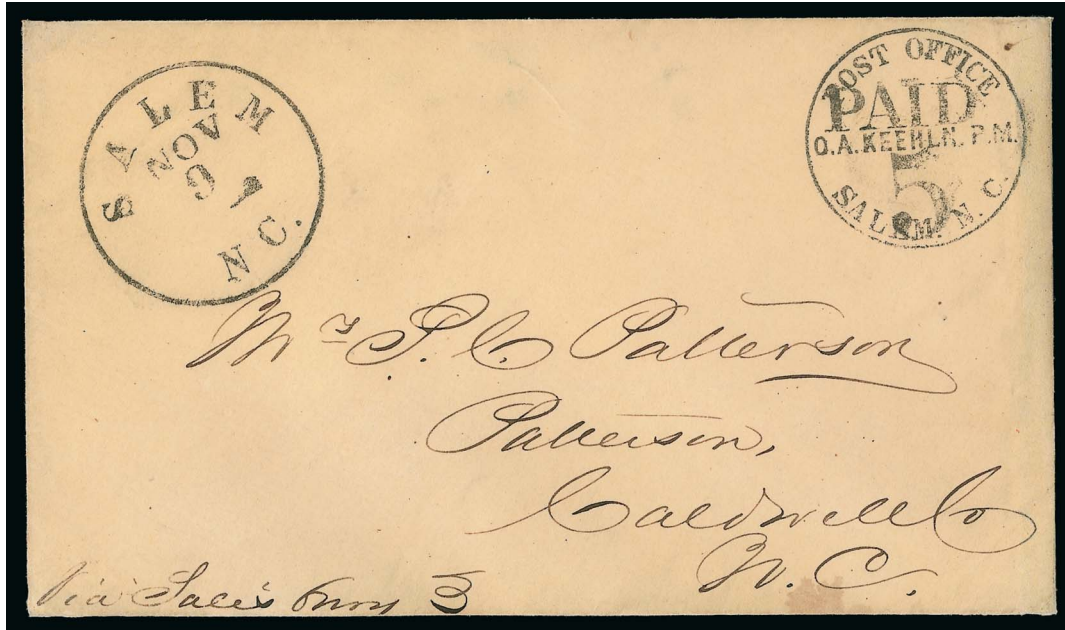 SALEM
NOV
9
N C.
POST OFFICE
PAID
O.A. KEEHLN. P.M.
5
SALEM. N. C.
Mrs P. C. Patterson
Patterson,
Caldwell Co
N. C.
Via Salisbury